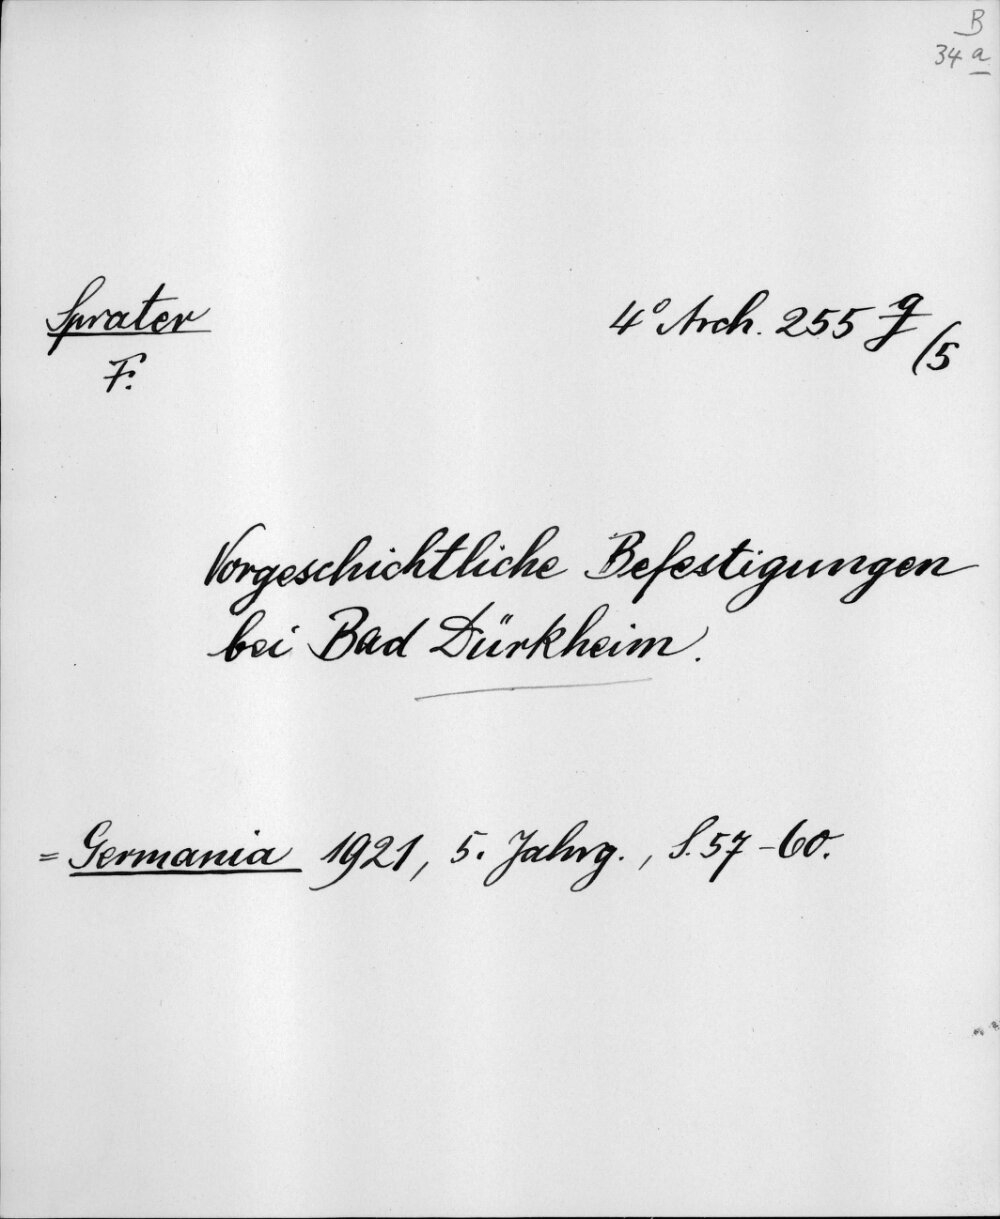 B
34 a
Sprater
F.
4° Arch. 255 g/f /5
Vorgeschichtliche Befestigungen
bei Bad Dürkheim.
= Germania 1921, 5. Jahrg., S. 57-60.